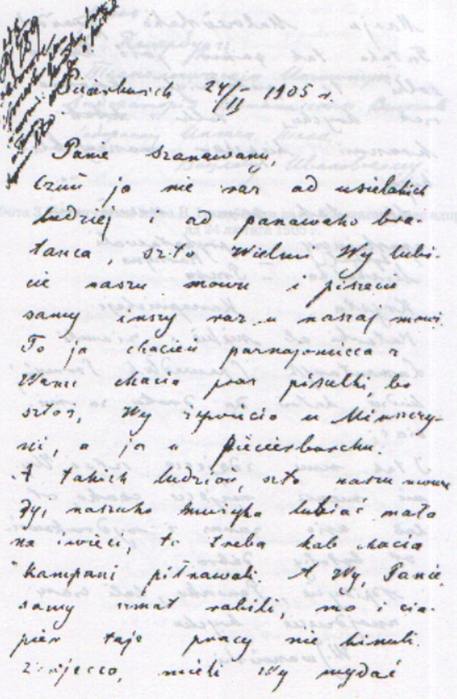 Pieciarburch 24/II 1905 r.
Panie szanawany,
Czuŭ ja nie raz ad usielakich
ludziej i ad panawaho bra-
tanca, szto Wielmi Wy lubi-
cie naszu mowu i piszecie
samy inszy raz u naszaj mowi.
To ja chacieŭ parnajomicca z
Wami chacia praz pisulki, bo
sztoż, Wy żywiecio u Minszczy-
ni, a ja u Pieciarburchu.
A takich ludzioŭ, szto naszu mowu
dy, naszuho mużyka lubiać mało
na świeci, to treba kab chacia
kampani pilnawali. A Wy, Panie,
samy szmat rabili, no i cia-
pier taje pracy nie kinuli.
Zdajecca, mieli Wy wydać